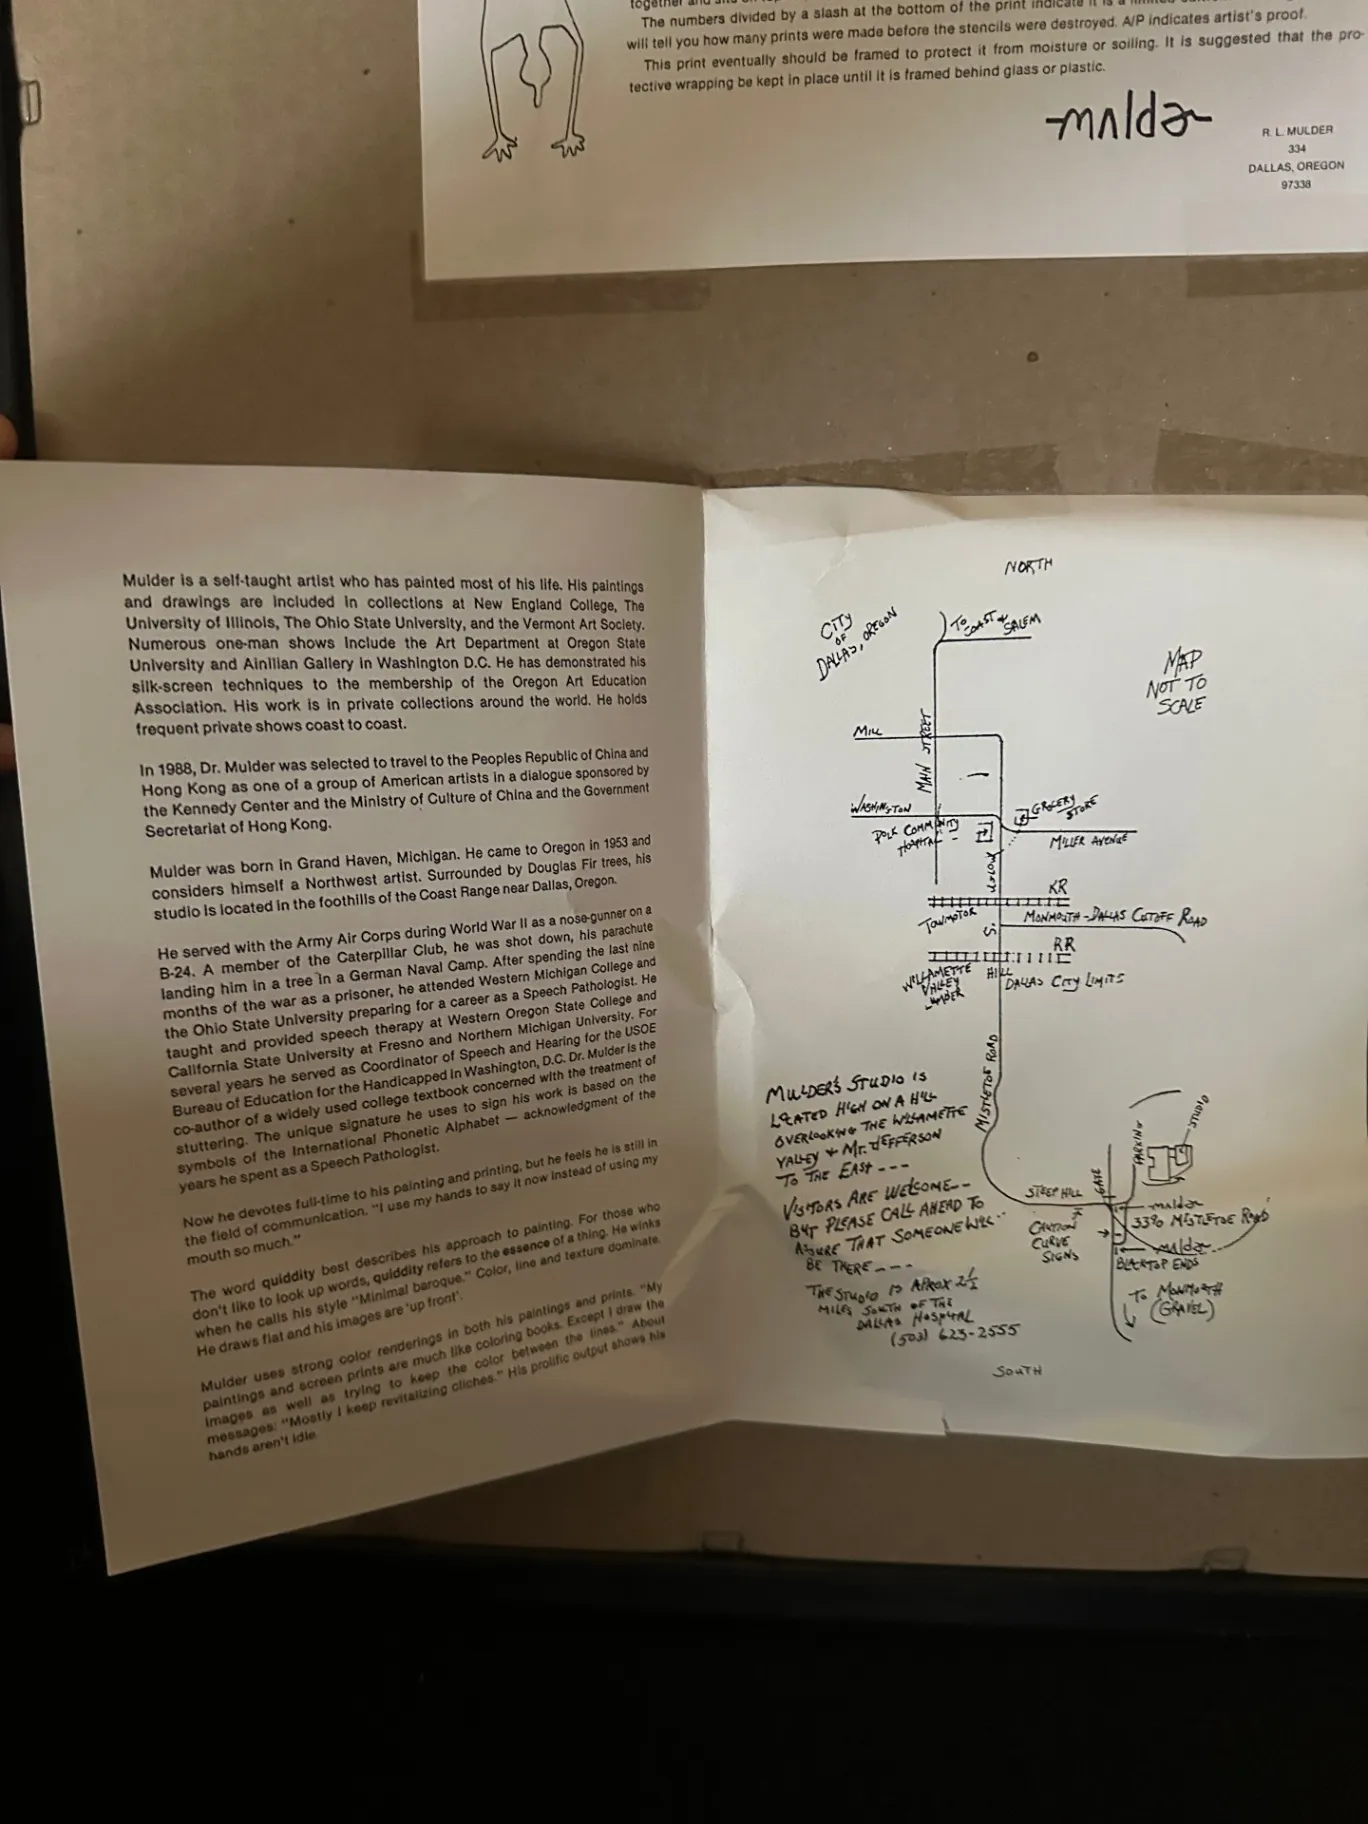 The numbers divided by a slash at the bottom of the print indicate it is a
will tell you how many prints were made before the stencils were destroyed. A/P indicates artist's proof.
This print eventually should be framed to protect it from moisture or soiling. It is suggested that the pro-
tective wrapping be kept in place until it is framed behind glass or plastic.
R. L. MULDER
334
DALLAS, OREGON
97338
Mulder is a self-taught artist who has painted most of his life. His paintings
and drawings are included in collections at New England College, The
University of Illinois, The Ohio State University, and the Vermont Art Society.
Numerous one-man shows include the Art Department at Oregon State
University and Ainilian Gallery in Washington D.C. He has demonstrated his
silk-screen techniques to the membership of the Oregon Art Education
Association. His work is in private collections around the world. He holds
frequent private shows coast to coast.
In 1988, Dr. Mulder was selected to travel to the Peoples Republic of China and
Hong Kong as one of a group of American artists in a dialogue sponsored by
the Kennedy Center and the Ministry of Culture of China and the Government
Secretariat of Hong Kong.
Mulder was born in Grand Haven, Michigan. He came to Oregon in 1953 and
considers himself a Northwest artist. Surrounded by Douglas Fir trees, his
studio is located in the foothills of the Coast Range near Dallas, Oregon.
He served with the Army Air Corps during World War II as a nose-gunner on a
B-24. A member of the Caterpillar Club, he was shot down, his parachute
landing him in a tree in a German Naval Camp. After spending the last nine
months of the war as a prisoner, he attended Western Michigan College and
the Ohio State University preparing for a career as a Speech Pathologist. He
taught and provided speech therapy at Western Oregon State College and
California State University at Fresno and Northern Michigan University. For
several years he served as Coordinator of Speech and Hearing for the USOE
Bureau of Education for the Handicapped in Washington, D.C. Dr. Mulder is the
co-author of a widely used college textbook concerned with the treatment of
stuttering. The unique signature he uses to sign his work is based on the
symbols of the International Phonetic Alphabet — acknowledgment of the
years he spent as a Speech Pathologist.
Now he devotes full-time to his painting and printing, but he feels he is still in
the field of communication. "I use my hands to say it now instead of using my
mouth so much."
The word quiddity best describes his approach to painting. For those who
don't like to look up words, quiddity refers to the essence of a thing. He winks
when he calls his style "Minimal baroque." Color, line and texture dominate.
He draws flat and his images are 'up front'.
Mulder uses strong color renderings in both his paintings and prints. "My
paintings and screen prints are much like coloring books. Except I draw the
images as well as trying to keep the color between the lines." About
messages: "Mostly I keep revitalizing cliches." His prolific output shows his
hands aren't idle.
NORTH
CITY
OF
DALLAS, OREGON
TO
COAST &
SALEM
MAP
NOT TO
SCALE
MILL
MAIN STREET
WASHINGTON
GROCERY
STORE
POLK COMMUNITY
HOSPITAL
MILLER AVENUE
UGLOW
RR
TOWMOTOR
S.
MONMOUTH-DALLAS CUTOFF ROAD
RR
WILLAMETTE
VALLEY
LUMBER
HILL
DALLAS CITY LIMITS
MISTLETOE ROAD
MULDER'S STUDIO IS
LOCATED HIGH ON A HILL
OVERLOOKING THE WILLAMETTE
VALLEY & MT. JEFFERSON
TO THE EAST - - -
VISITORS ARE WELCOME--
BUT PLEASE CALL AHEAD TO
ASSURE THAT SOMEONE WILL--
BE THERE - - -
THE STUDIO IS APROX 2½
MILES SOUTH OF THE
DALLAS HOSPITAL
(503) 623-2555
STUDIO
PARKING
GATE
STEEP HILL
3390 MISTLETOE ROAD
CAUTION
CURVE
SIGNS
BLACKTOP ENDS
TO MONMOUTH
(GRAVEL)
SOUTH